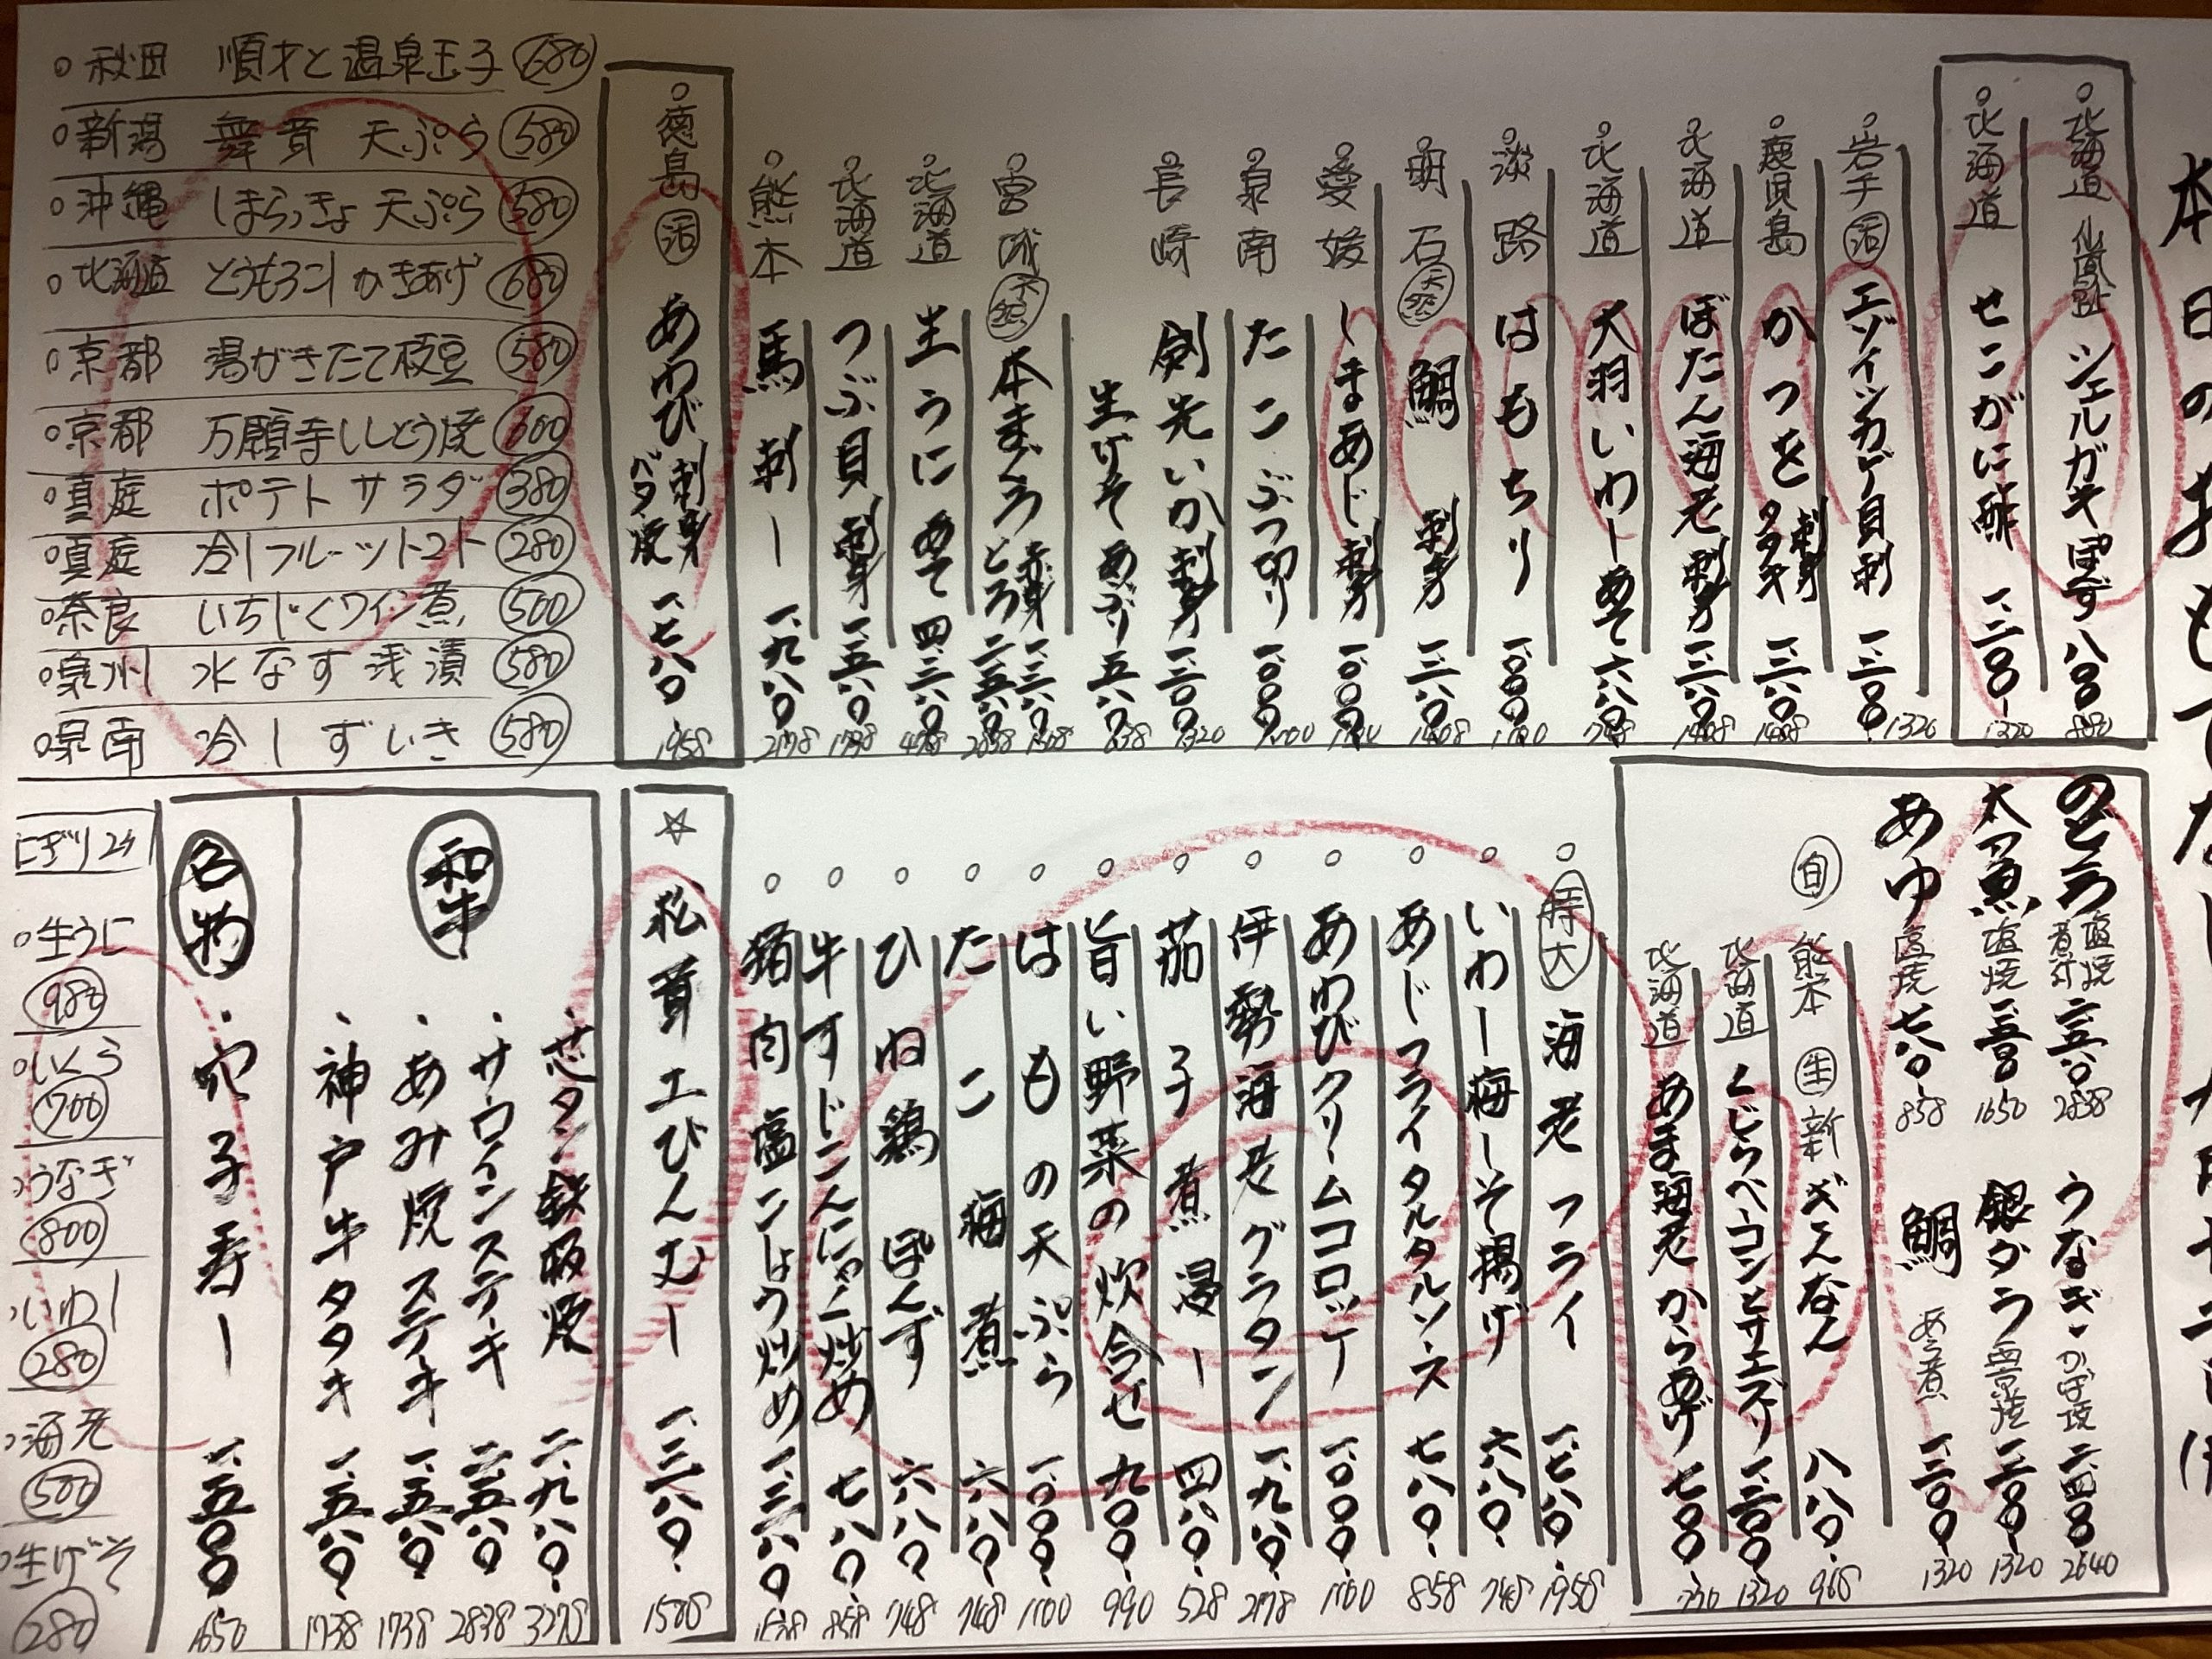 本日のおもてなし
北海道 仙鳳趾 シェルガキ ぽず 八〇〇 880
北海道 せこがに酢 一、二〇〇 1320
岩手 活 エゾイシカゲ貝刺 一、二〇〇 1320
鹿児島 かつを 刺身 タタキ 一、二八〇 1408
北海道 ぼたん海老 刺身 一、二八〇 1408
北海道 大羽いわし あて 六八〇 748
淡路 はもちり 一、〇〇〇 1100
明石 天然 鯛 刺身 一、二八〇 1408
愛媛 しまあじ 刺身 一、〇〇〇
泉南 たこぶつ切り 一、〇〇〇 1100
長崎 剣先いか刺身 一、二〇〇 1320
生げそ あぶり 五八〇 638
宮城 天然 本まぐろ 赤身 一、二八〇 1408 とろ 二、五八〇 2838
北海道 生うに あて 四、三八〇
北海道 つぶ貝 刺身 一、五八〇 1738
熊本 馬刺し 一、九八〇 2178
徳島 活 あわび 刺身 バタ焼 一、七八〇 1958
秋田 順才と温泉玉子 680
新潟 舞茸 天ぷら 580
沖縄 しまらっきょ 天ぷら 580
北海道 とうもろこし かきあげ 680
京都 湯がきたて枝豆 580
京都 万願寺ししとう焼 600
真庭 ポテトサラダ 380
真庭 冷しフルーツトマト 280
奈良 いちじくワイン煮 500
泉州 水なす浅漬 580
泉南 冷しずいき 580
のどぐろ 塩焼 煮付 二、五八〇 2838
うなぎ・かば焼 二、四〇〇 2640
太刀魚 塩焼 一、五〇〇 1650
銀ダラ 西京焼 一、二〇〇 1320
あゆ 塩焼 七八〇 858
鯛 あら煮 一、二〇〇 1320
旬 熊本 生 新ぎんなん 八八〇 968
北海道 くじらベーコンとサエズリ 一、二〇〇 1320
北海道 あま海老 からあげ 七〇〇 770
特大 海老フライ 一、七八〇 1958
いわし梅しそ揚げ 六八〇 748
あじフライタルタルソース 七八〇 858
あわびクリームコロッケ 一、〇〇〇 1100
伊勢海老グラタン 一、九八〇 2178
茄子煮浸し 四八〇 528
旨い野菜の炊合せ 九〇〇 990
はもの天ぷら 一、〇〇〇 1100
たこ梅煮 六八〇 748
ひね鶏ぽんず 六八〇 748
牛すじこんにゃく炒め 七八〇 858
猪肉塩こしょう炒め 一、三八〇
☆ 松茸土びんむし 一、三八〇 1508
和牛
芯タン鉄板焼 二、九八〇 3278
サーロインステーキ 二、五八〇 2838
あみ焼ステーキ 一、五八〇 1738
神戸牛タタキ 一、五八〇 1738
名物
穴子寿し 一、五〇〇 1650
にぎり2ケ
生うに 980
いくら 700
うなぎ 800
いわし 280
海老 500
生げそ 280